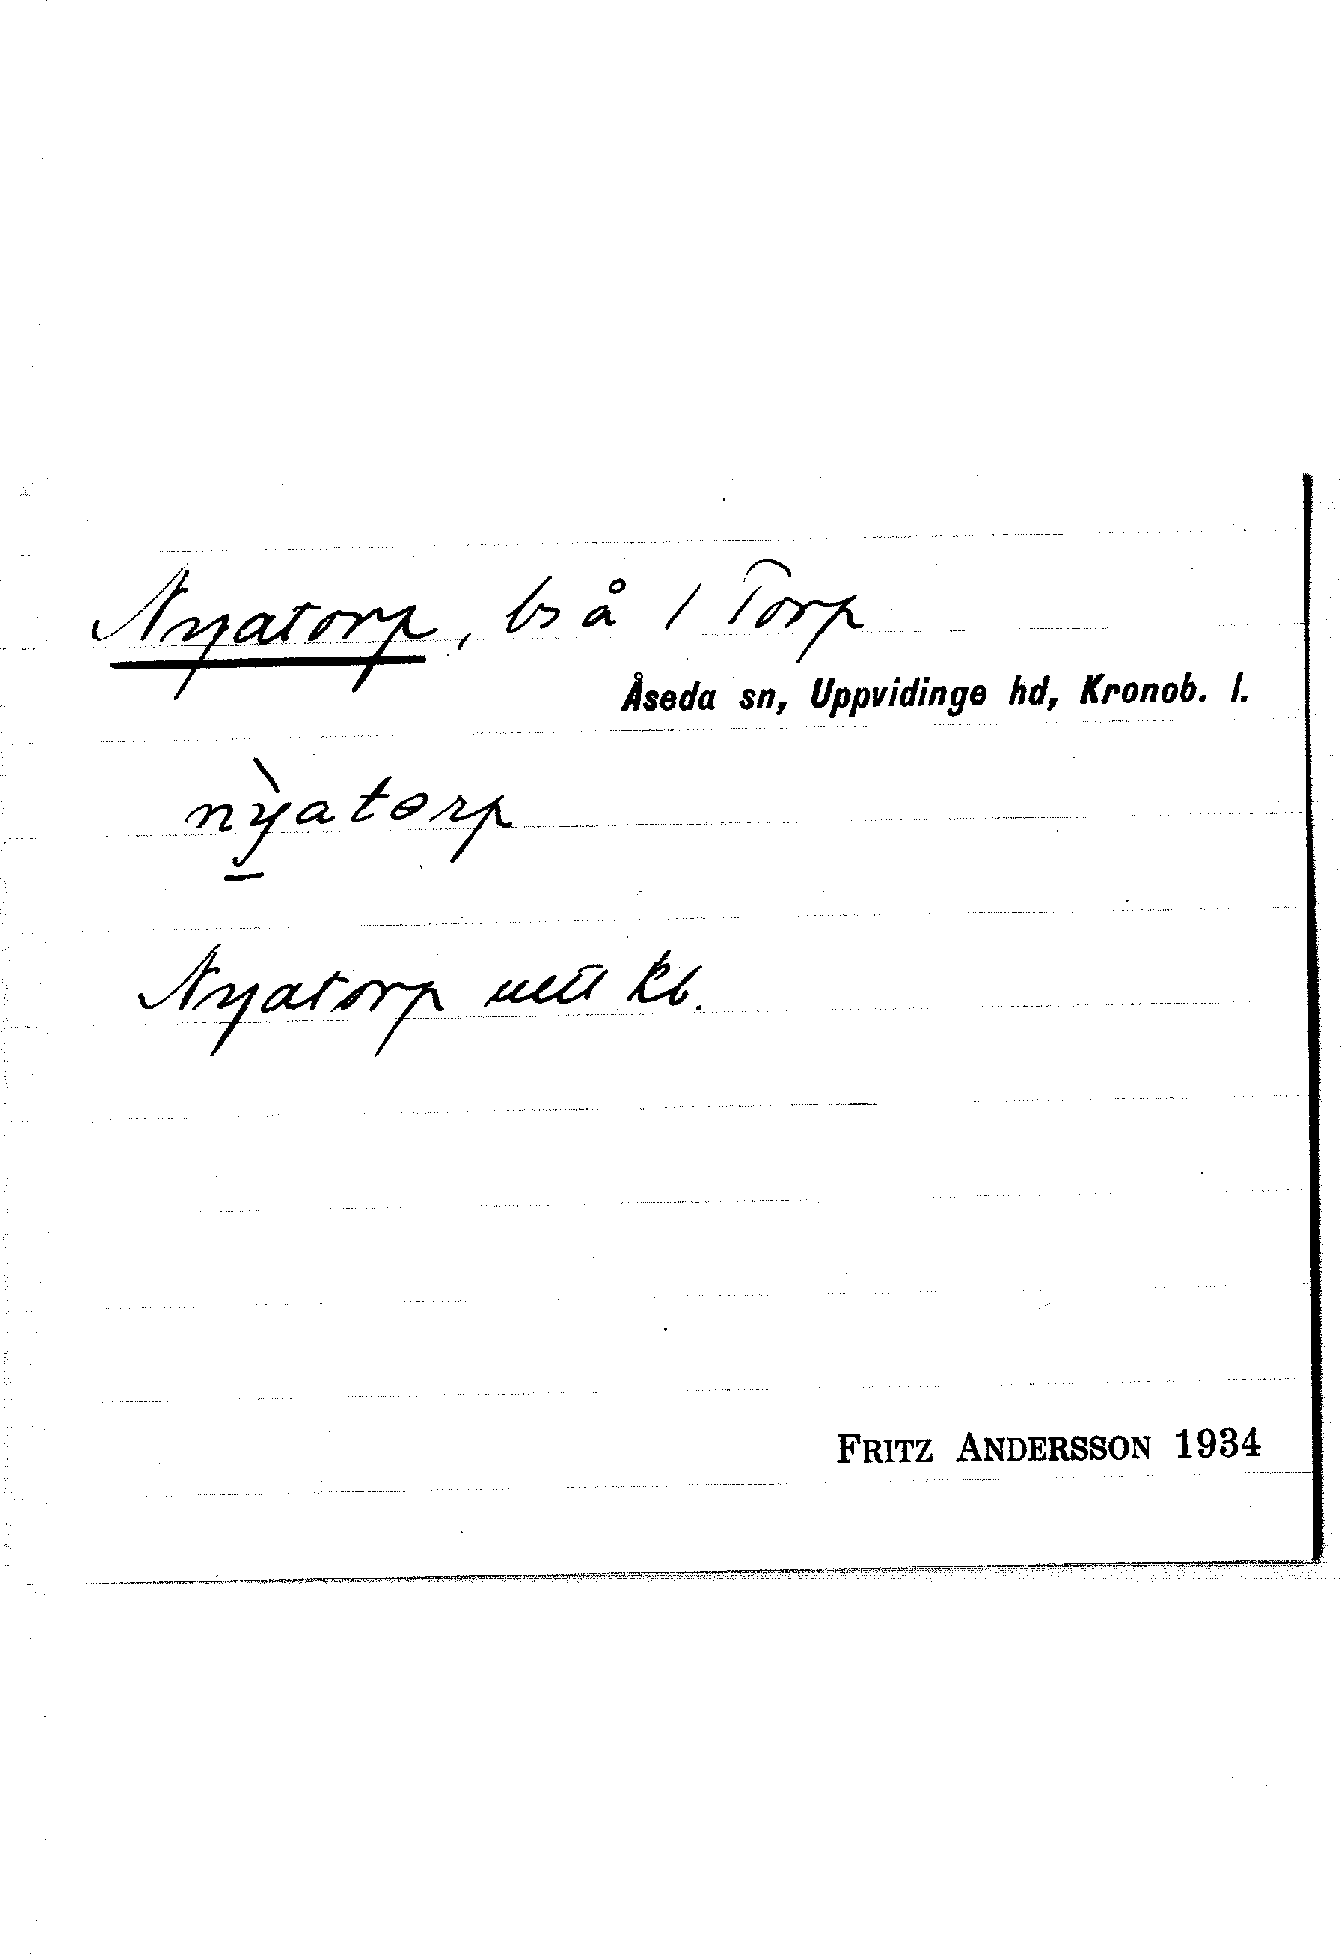 Nyatorp, bs å 1 Torp
Åseda sn, Uppvidinge hd, Kronob. l.
nỳatorp
Nyatorp utt kb.
FRITZ ANDERSSON 1934